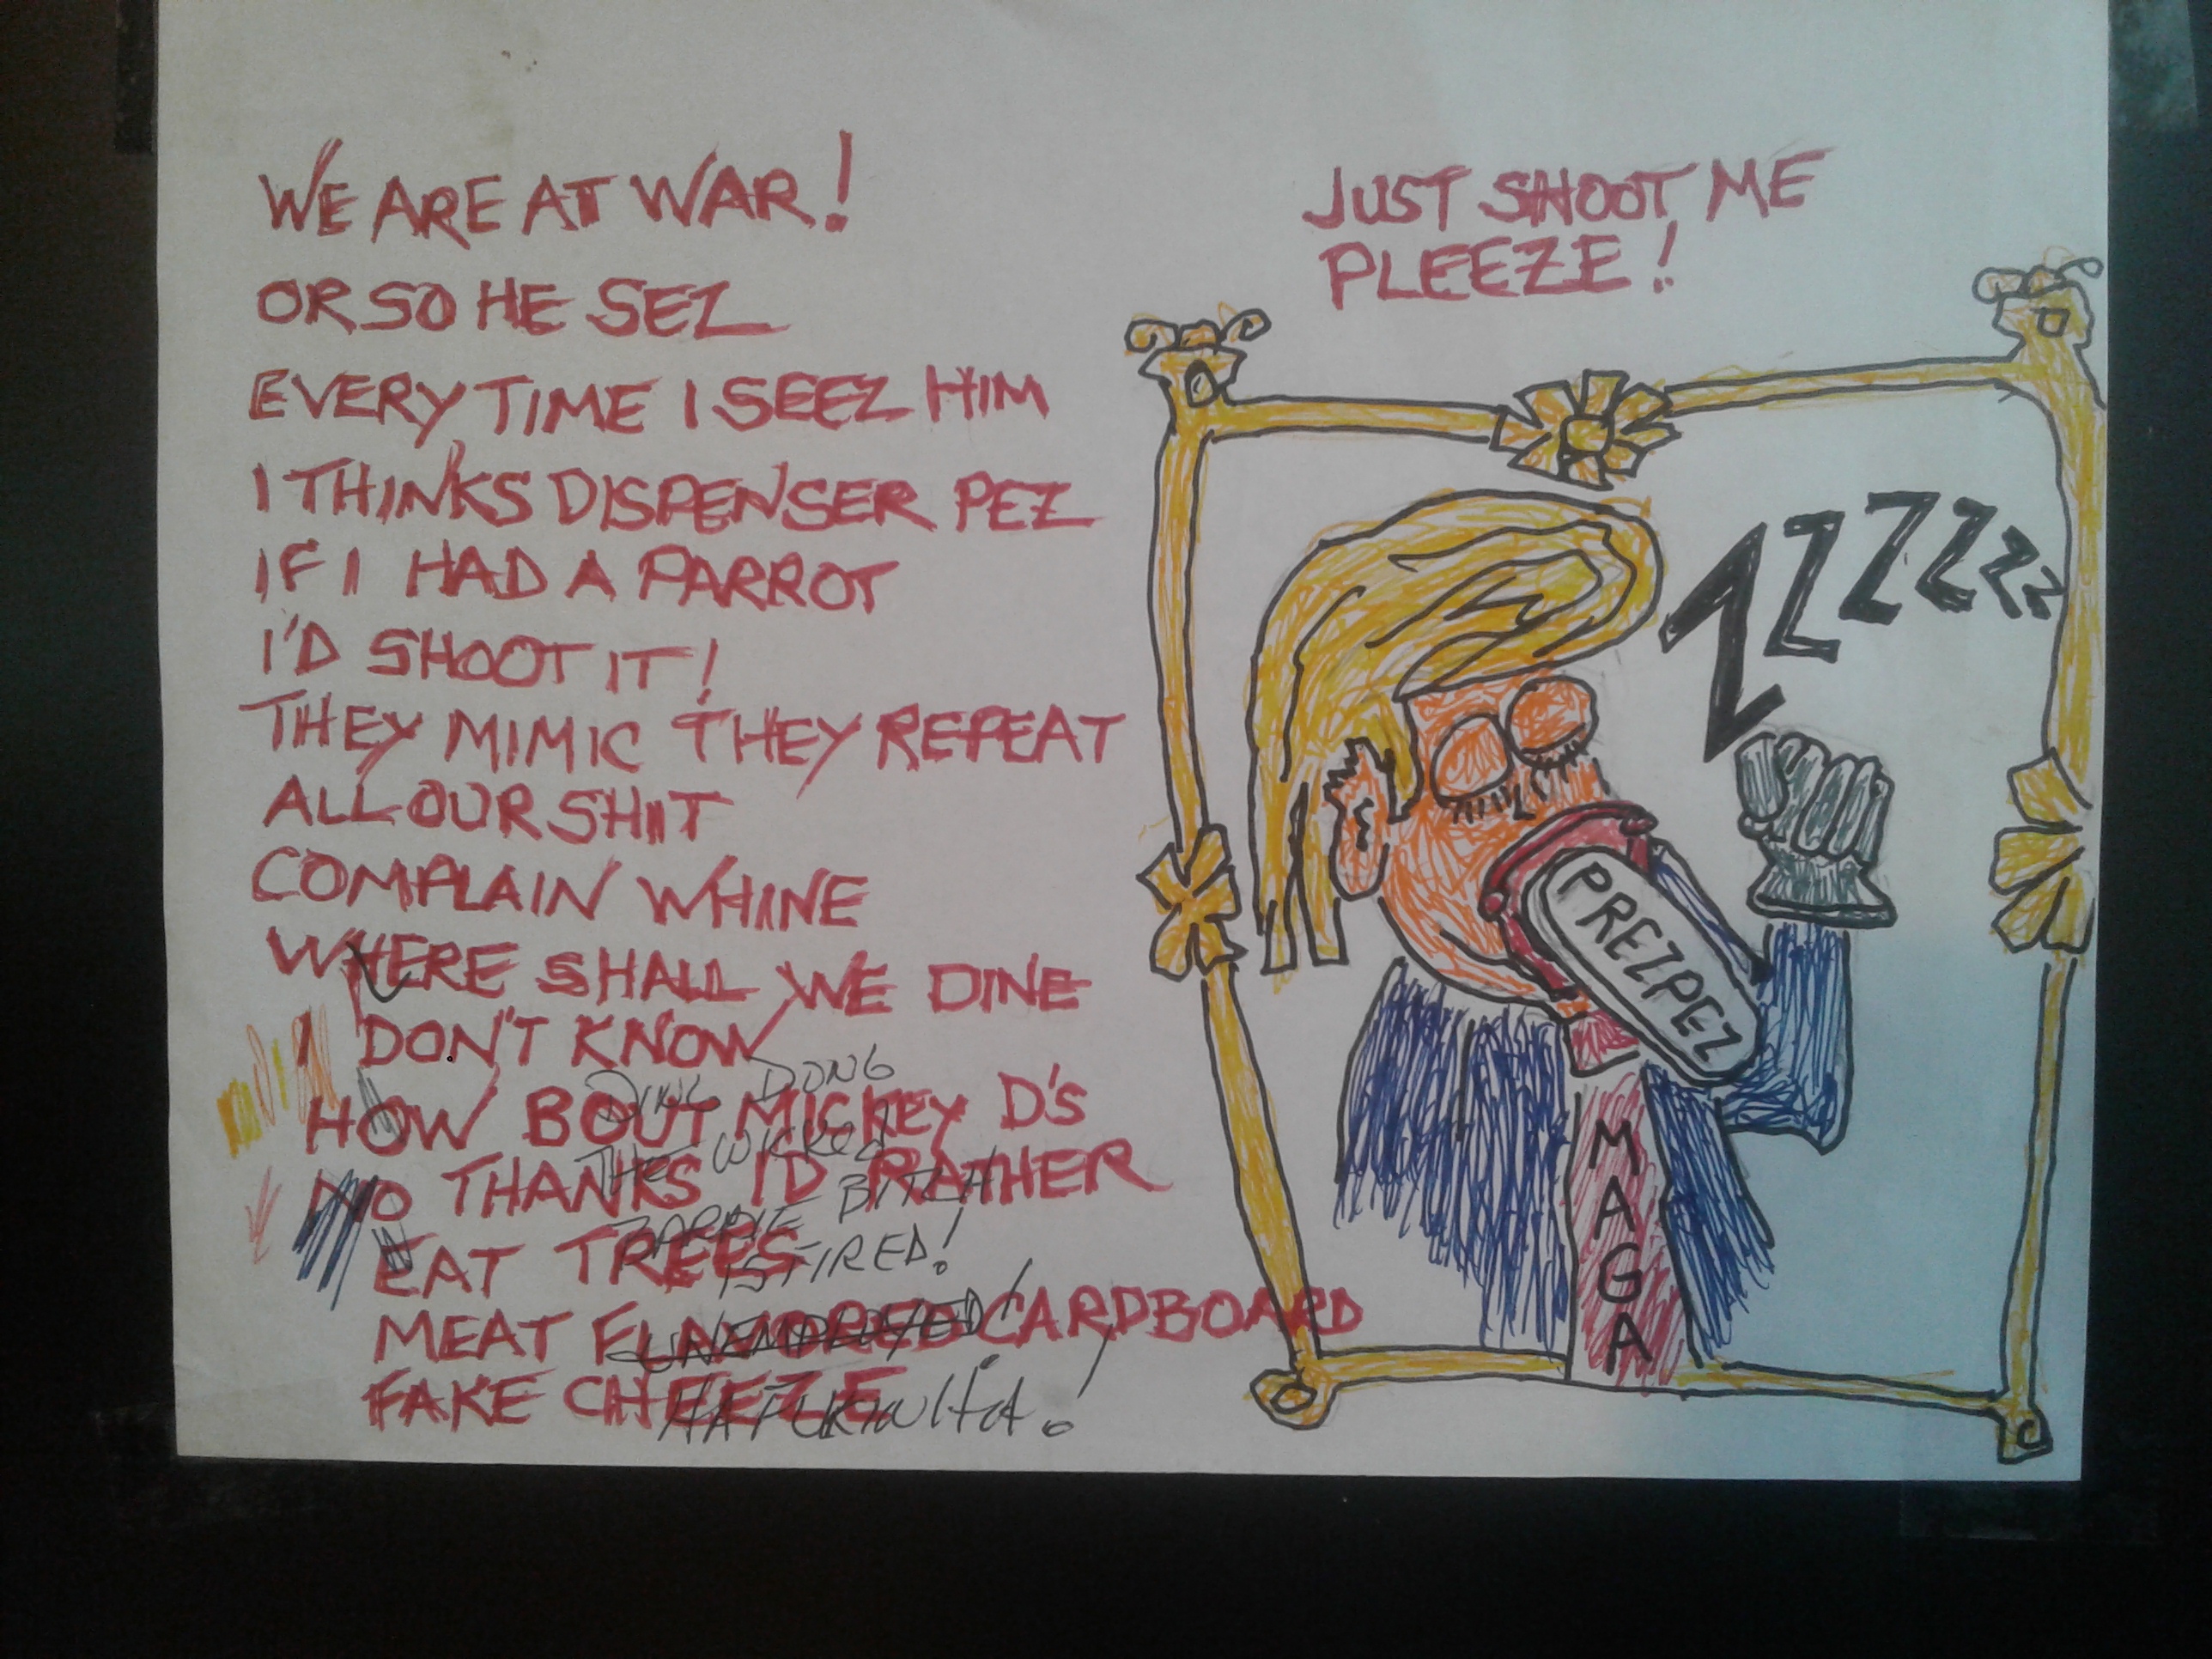 WE ARE AT WAR!
OR SO HE SEZ
EVERY TIME I SEEZ HIM
I THINKS DISPENSER PEZ
IF I HAD A PARROT
I'D SHOOT IT!
THEY MIMIC THEY REPEAT
ALL OUR SHIT
COMPLAIN WHINE
WHERE SHALL WE DINE
I DON'T KNOW
HOW BOUT MICKEY D'S
NO THANKS I'D RATHER
EAT TREES
MEAT FLAVORED CARDBOARD
FAKE CHEEZE
DING DONG
THE WICKED
BARBIE BITCH
IS FIRED!
UNEMPLOYED!
JUST SHOOT ME
PLEEZE!
ZZZZZZ
PREZPEZ
MAGA